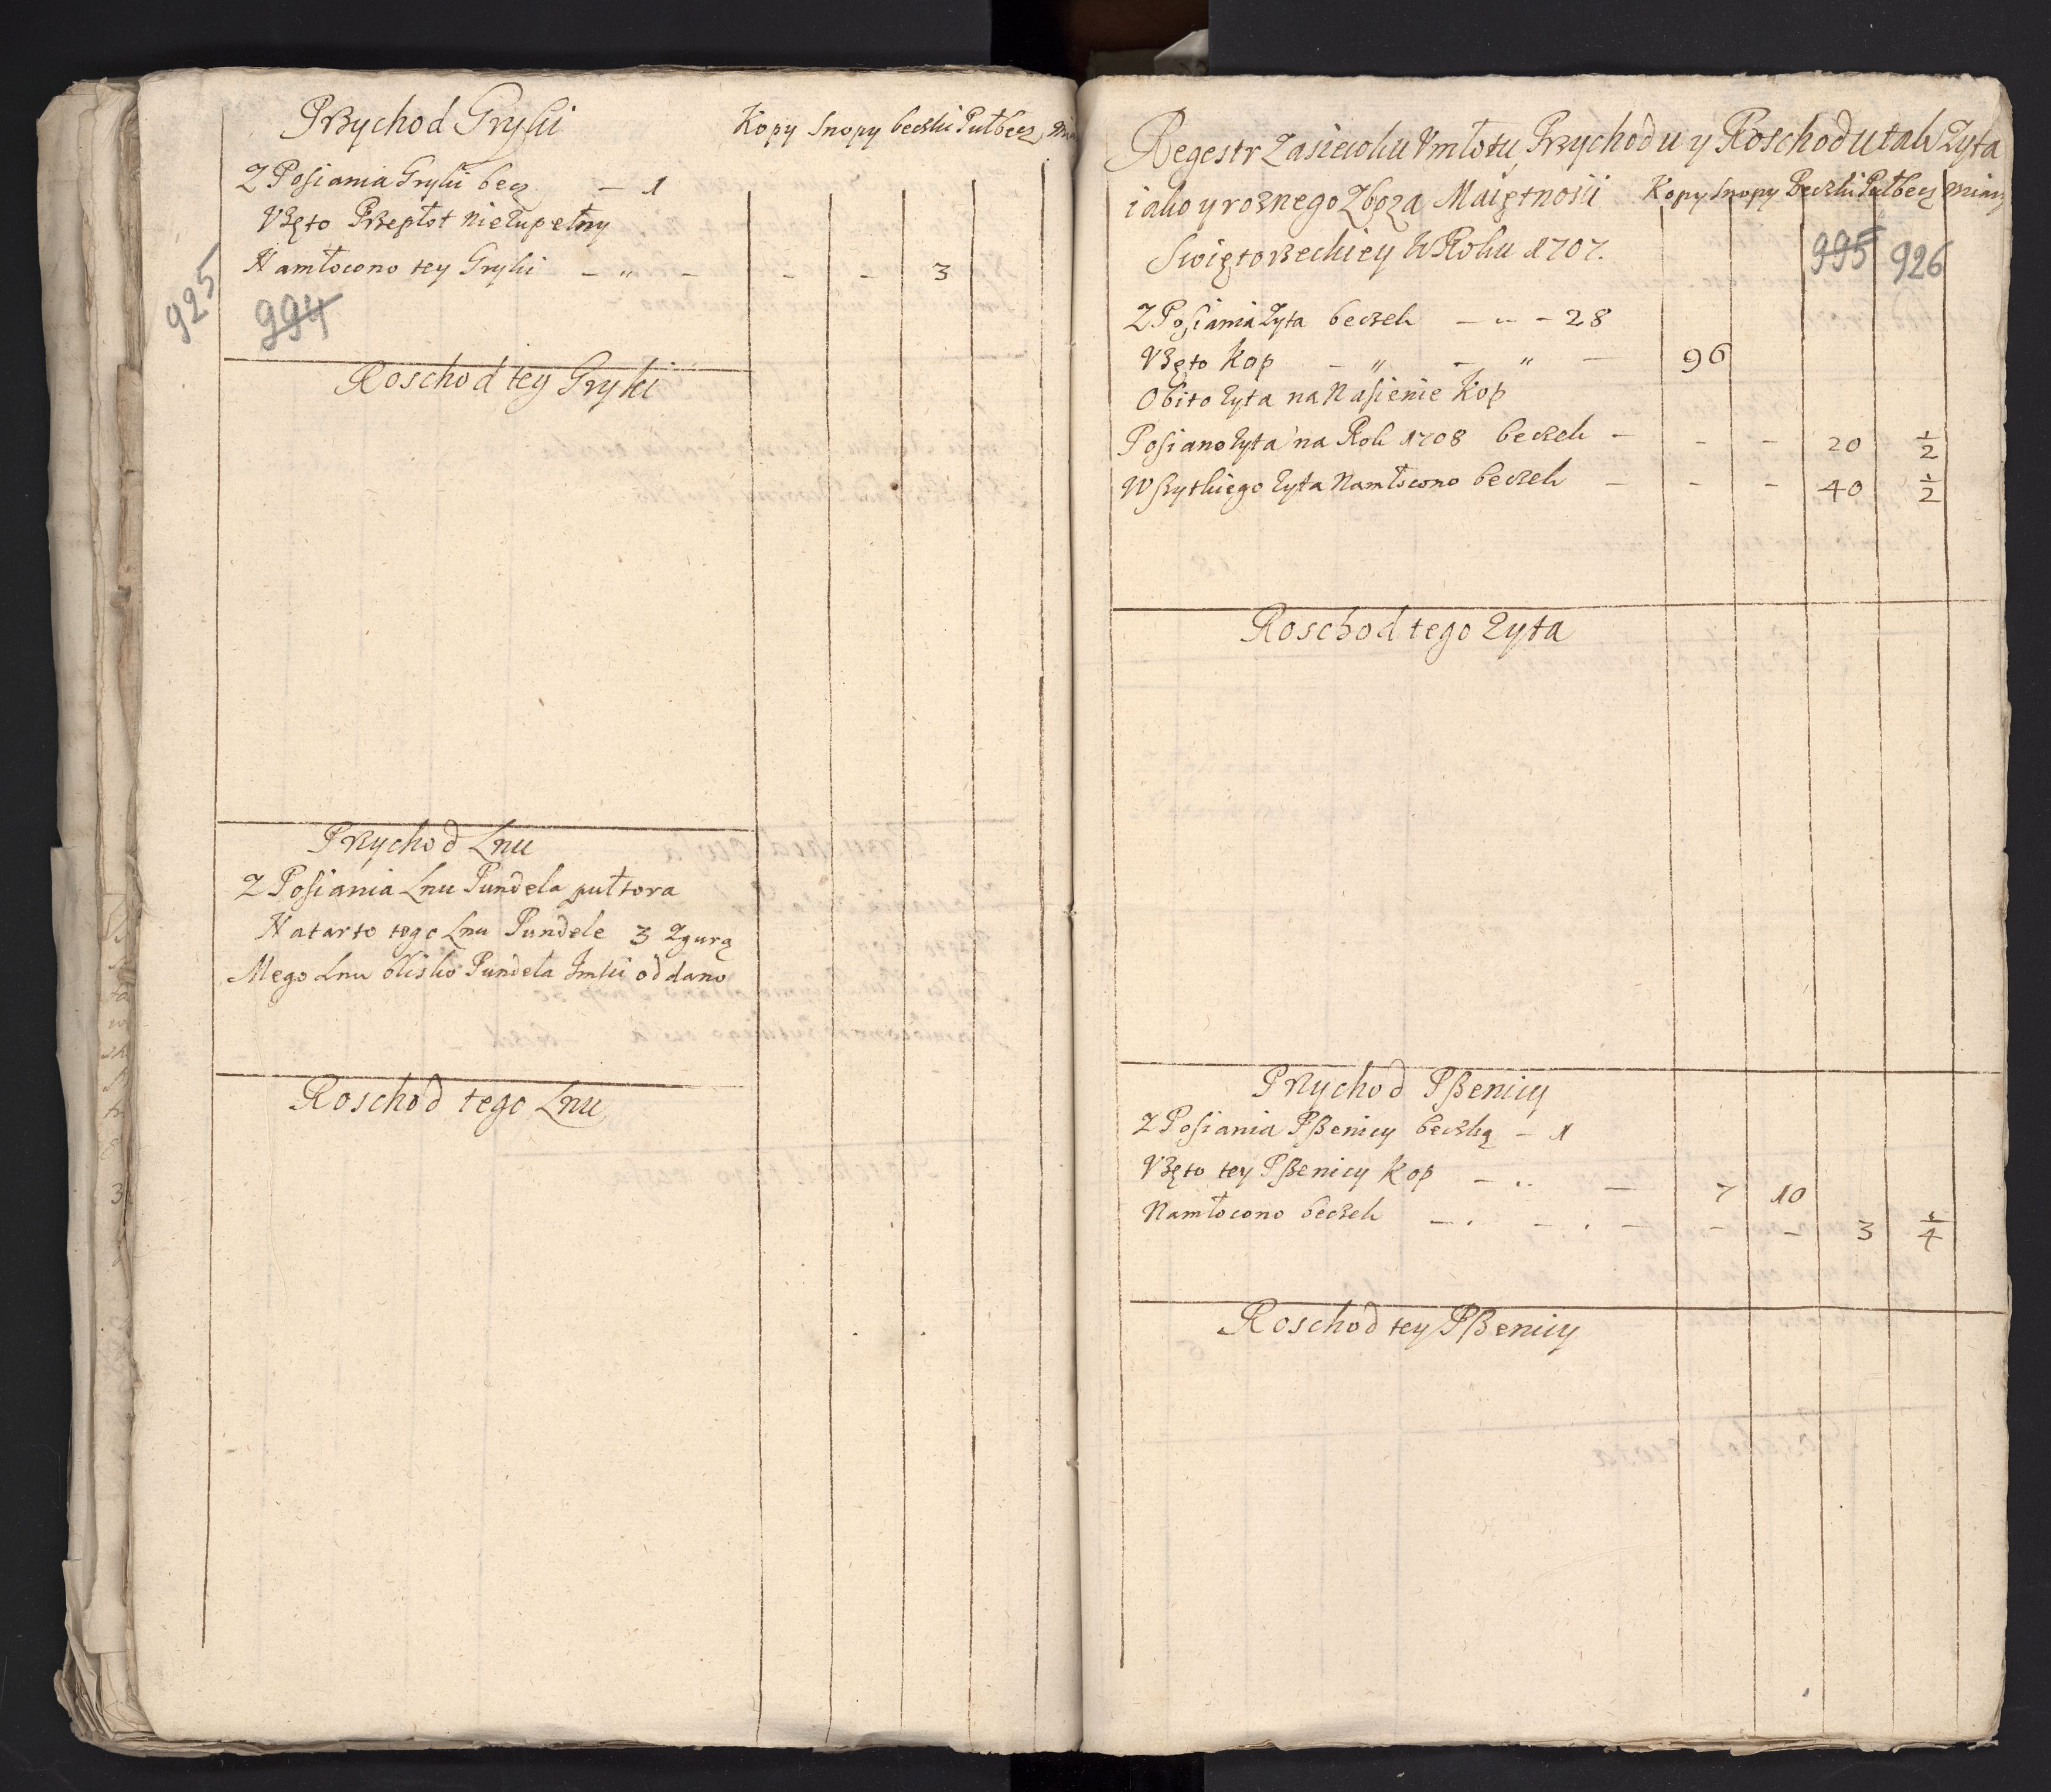 Przychod Gryki Kopy Snopy beczki Pułbecz
Z Posiania Gryki becz. — 1
Vżęto Przepłot niezupełny
Namłocono tey Gryki — „ — - - 3
925
994
Roschod tey Gryki
Przychod Lnu
Z Posiania Lnu Pundela pułtora
Natarto tego Lnu Pundele 3 Zgurą
Mego Lnu blisko Pundela Imki oddano
Roschod tego Lnu
Regestr Zasiewku Vmłotu Przychodu y Roschodu tak Zyta
iako y rożnego Zboza Maiętnosii Kopy Snopy Beczki Pułbecz miary
Swiętorzeckiey W Roku 1707.
995 926
Z Posiania Zyta beczek — „ — 28
Vżęto Kop — „ — „ — 96
Obito Zyta na Nasienie Kop
Posiano Zyta na Rok 1708 beczek — - - 20 1/2
Wszytkiego Zyta Namłocono beczek — - - 40 1/2
Roschod tego Zyta
Przychod Pßenicy
Z Posiania Pßenicy beczką — 1
Vżęto tey Pßenicy Kop — „ — 7 10
Namłocono beczek — . — . — - - 3 1/4
Roschod tey Pßenicy